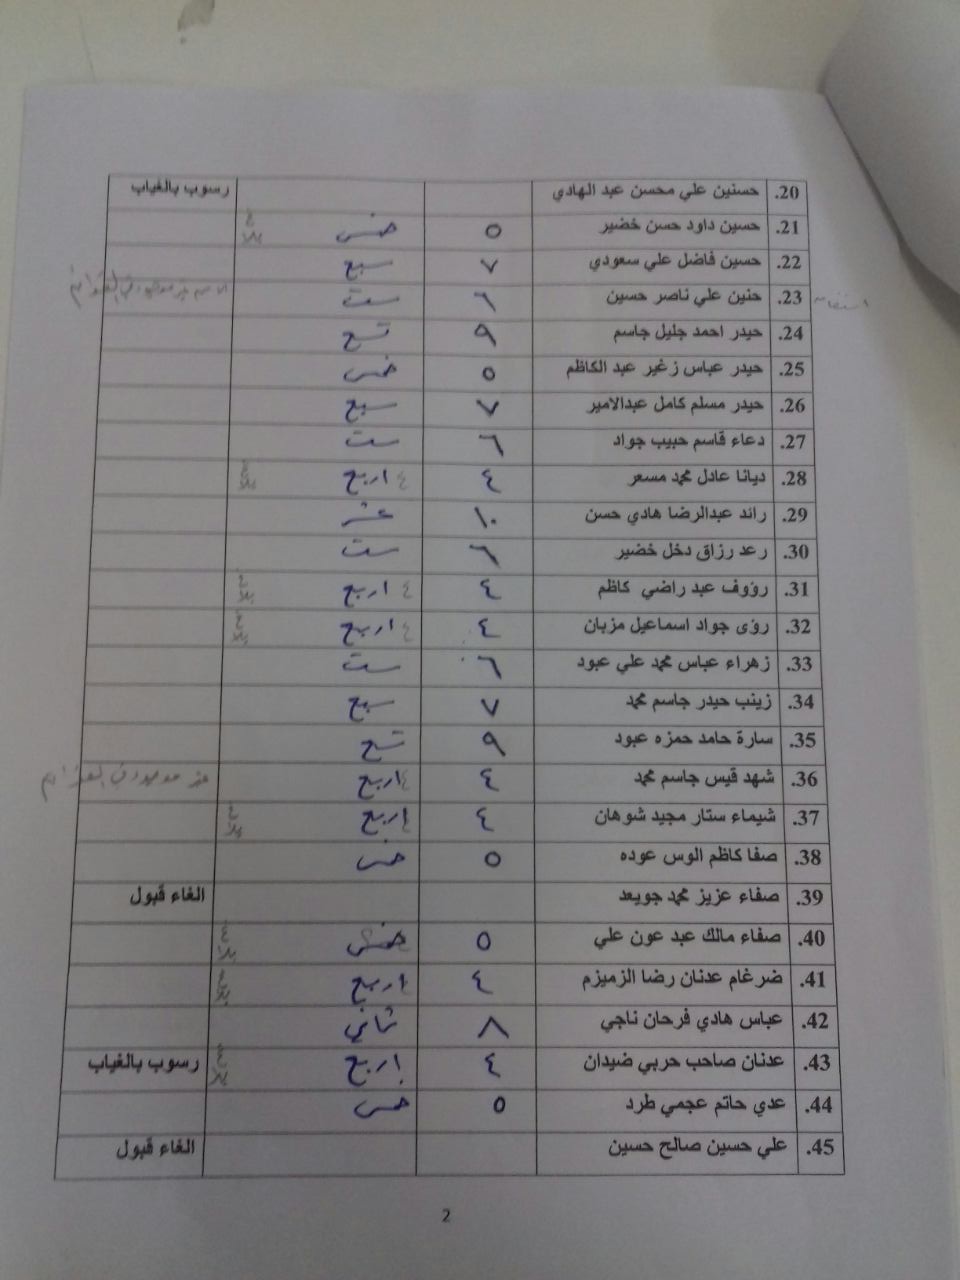 20. حسنين علي محسن عبد الهادي رسوب بالغياب
21. حسين داود حسن خضير ٥ خمس
22. حسين فاضل علي سعودي ٧ سبع
23. حنين علي ناصر حسين ٦ ست
24. حيدر احمد جليل جاسم ٩ تسع
25. حيدر عباس زغير عبد الكاظم ٥ خمس
26. حيدر مسلم كامل عبدالامير ٧ سبع
27. دعاء قاسم حبيب جواد ٦ ست
28. ديانا عادل محمد مسعر ٤ ٤ اربع
29. رائد عبدالرضا هادي حسن ١٠ عشر
30. رعد رزاق دخل خضير ٦ ست
31. رؤوف عبد راضي كاظم ٤ ٤ اربع
32. رؤى جواد اسماعيل مزبان ٤ ٤ اربع
33. زهراء عباس محمد علي عبود ٦ ست
34. زينب حيدر جاسم محمد ٧ سبع
35. سارة حامد حمزه عبود ٩ تسع
36. شهد قيس جاسم محمد ٤ ٤ اربع
37. شيماء ستار مجيد شوهان ٤ اربع
38. صفا كاظم الوس عوده ٥ خمس
39. صفاء عزيز محمد جويعد الغاء قبول
40. صفاء مالك عبد عون علي ٥ خمس
41. ضرغام عدنان رضا الزميزم ٤ اربع
42. عباس هادي فرحان ناجي ٨ ثماني
43. عدنان صاحب حربي ضيدان ٤ اربع رسوب بالغياب
44. عدي حاتم عجمي طرد ٥ خمس
45. علي حسين صالح حسين الغاء قبول
2